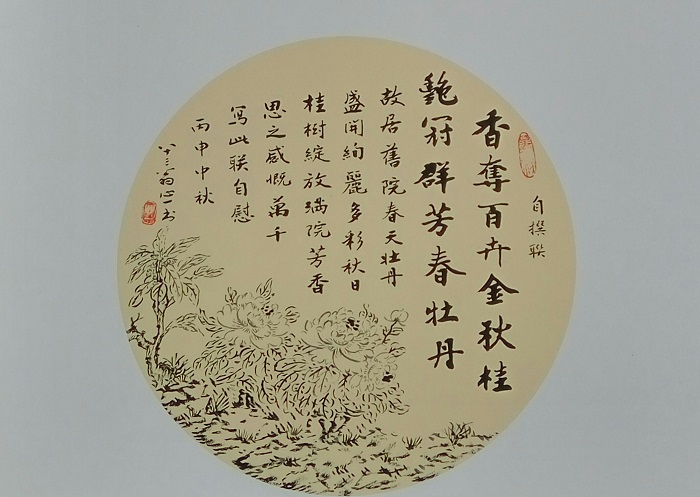 自撰联
香奪百卉金秋桂
艷冠群芳春牡丹
故居舊院春天牡丹
盛開絢麗多彩秋日
桂樹綻放满院芳香
思之感慨萬千
写此联自慰
丙申中秋
八十三翁 书